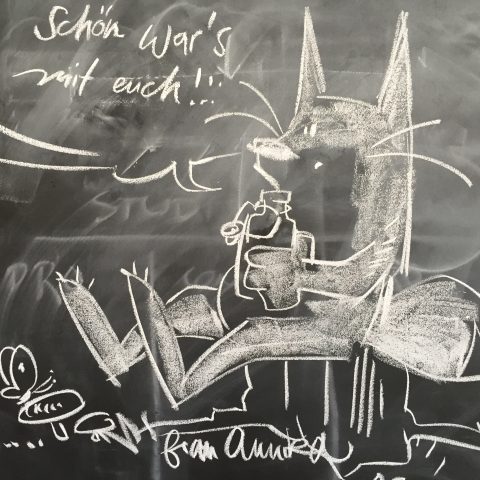 Schön war's
mit euch!!!
Frau Annika